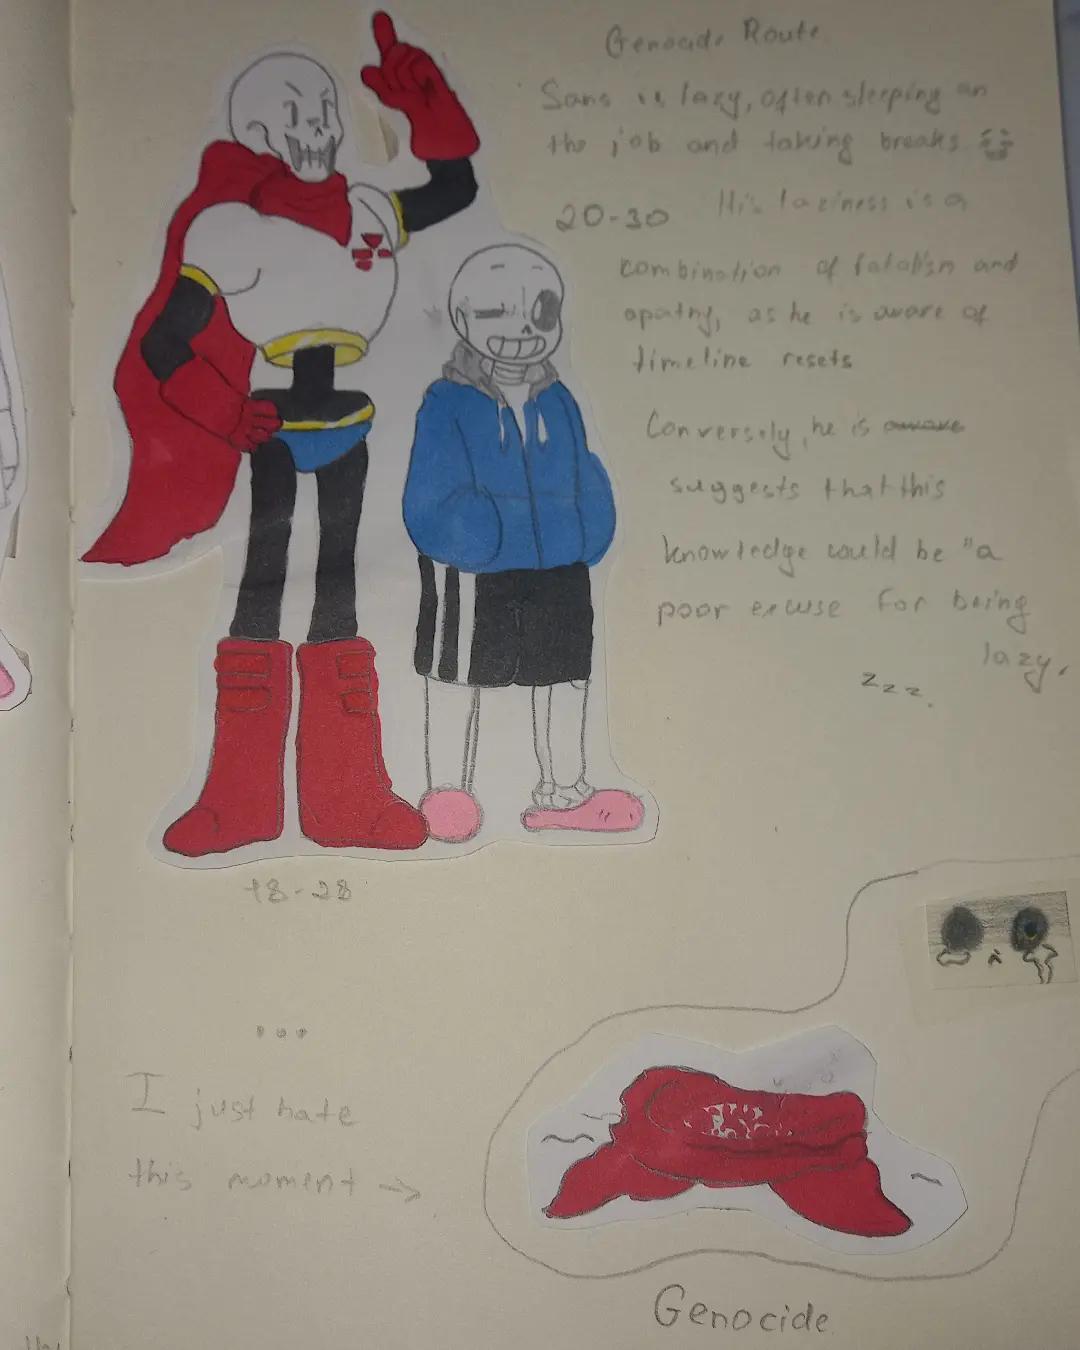 Genocide Route
Sans is lazy, often sleeping on
the job and taking breaks
20-30 His laziness is a
combination of fatalism and
apathy, as he is aware of
timeline resets
Conversely, he is aware
suggests that this
knowledge could be "a
poor excuse for being
lazy.
zzz.
18-28
...
I just hate
this moment →
Genocide